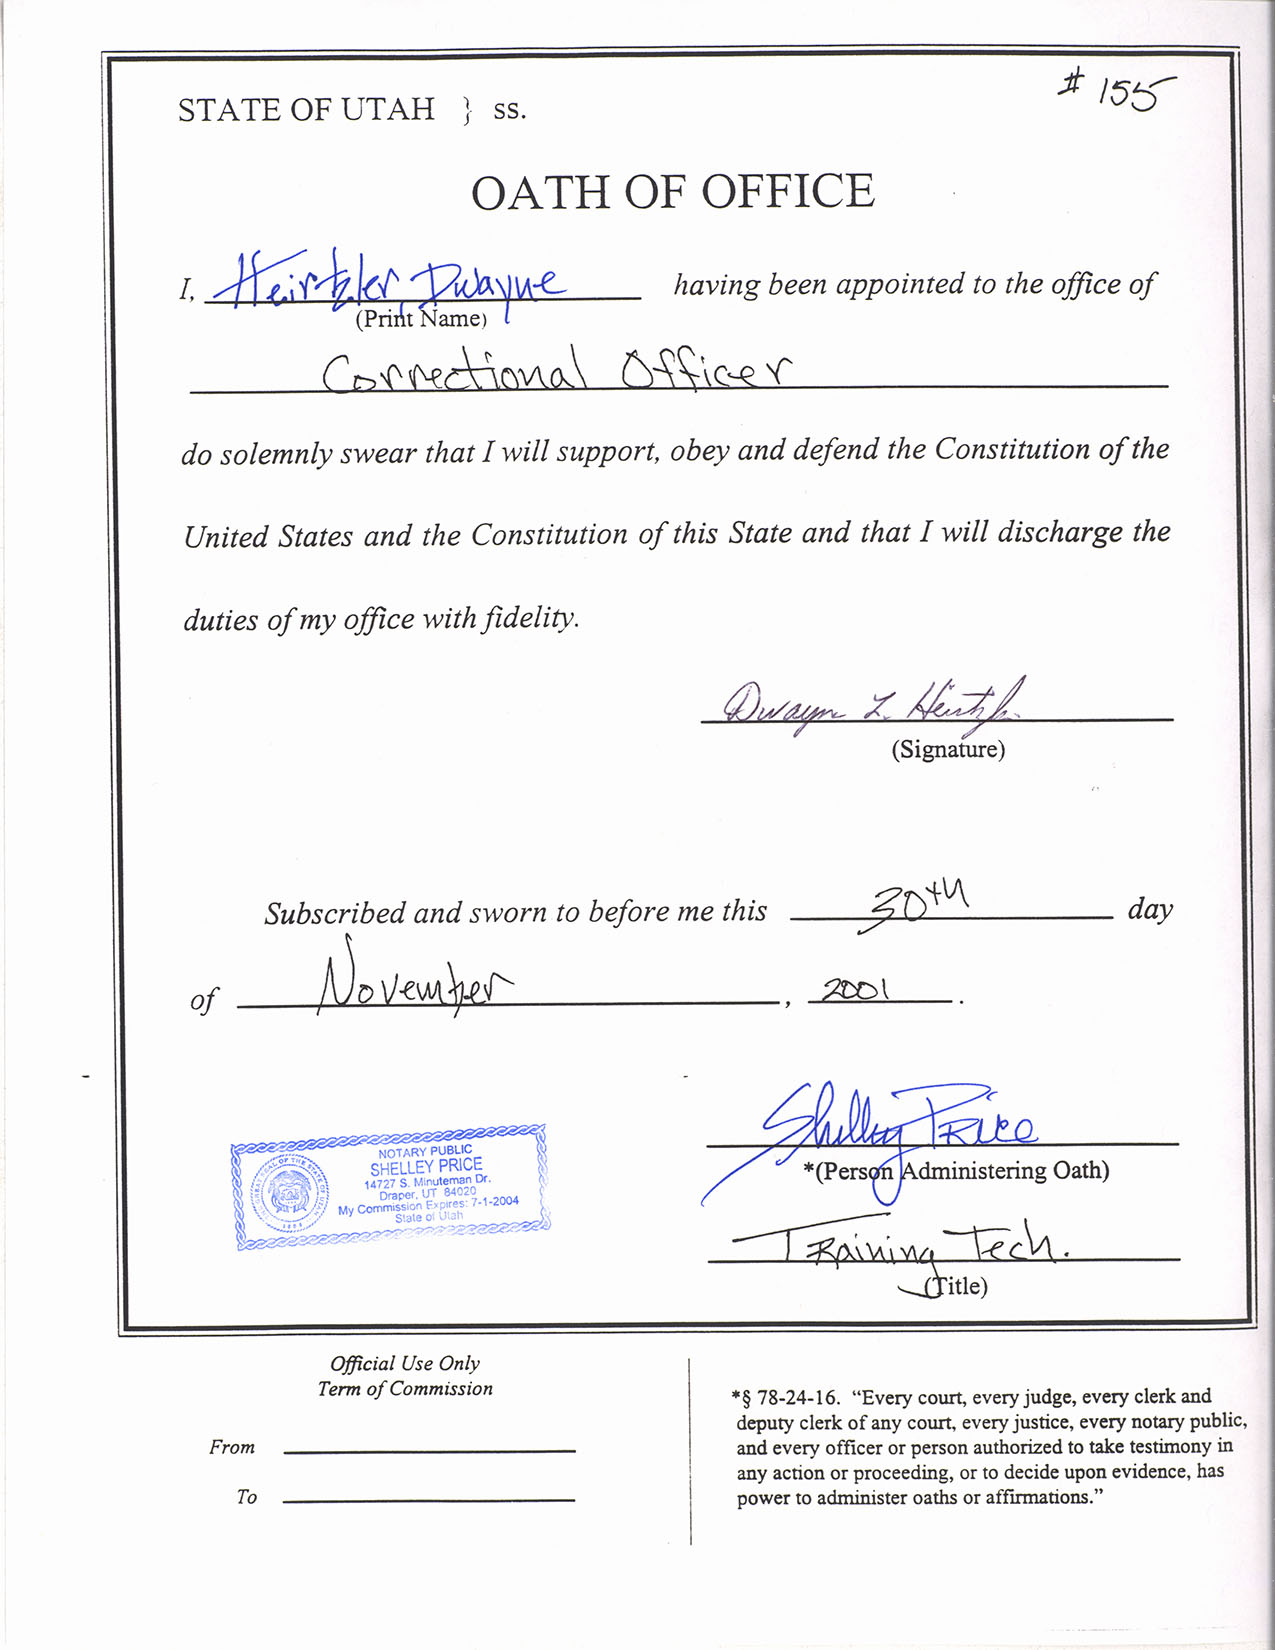 # 155
STATE OF UTAH } ss.
OATH OF OFFICE
I, Heirtzler, Dwayne having been appointed to the office of
(Print Name)
Correctional Officer
do solemnly swear that I will support, obey and defend the Constitution of the
United States and the Constitution of this State and that I will discharge the
duties of my office with fidelity.
Dwayne L. Heirtzler
(Signature)
Subscribed and sworn to before me this 30th day
of November, 2001.
Shelley Price
*(Person Administering Oath)
NOTARY PUBLIC
SHELLEY PRICE
14727 S. Minuteman Dr.
Draper, UT 84020
My Commission Expires: 7-1-2004
State of Utah
Training Tech.
(Title)
Official Use Only
Term of Commission
From
To
*§ 78-24-16. “Every court, every judge, every clerk and
deputy clerk of any court, every justice, every notary public,
and every officer or person authorized to take testimony in
any action or proceeding, or to decide upon evidence, has
power to administer oaths or affirmations.”